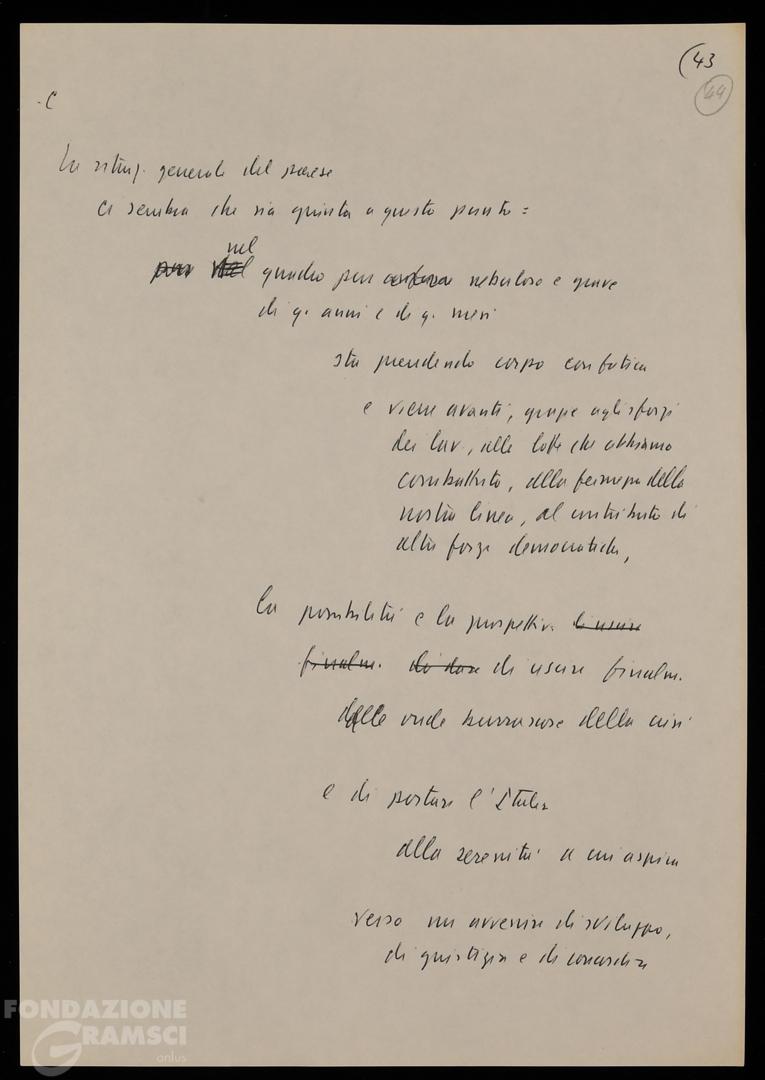 (43
44
.C
La situaz. generale del paese
ci sembra che sia giunta a questo punto =
nel
pur nel quadro pur confuso nebuloso e grave
di q. anni e di q. mesi
sta prendendo corpo con fatica
e viene avanti, grazie agli sforzi
dei lav., alle lotte che abbiamo
combattuto, alla fermezza della
nostra linea, al contributo di
altre forze democratiche,
la possibilità e la prospettiva di uscire
finalm. di dare di uscire finalm.
dalle onde burrascose della crisi
e di portare l'Italia
alla serenità a cui aspira
verso un avvenire di sviluppo,
di giustizia e di concordia
FONDAZIONE
GRAMSCI
onlus